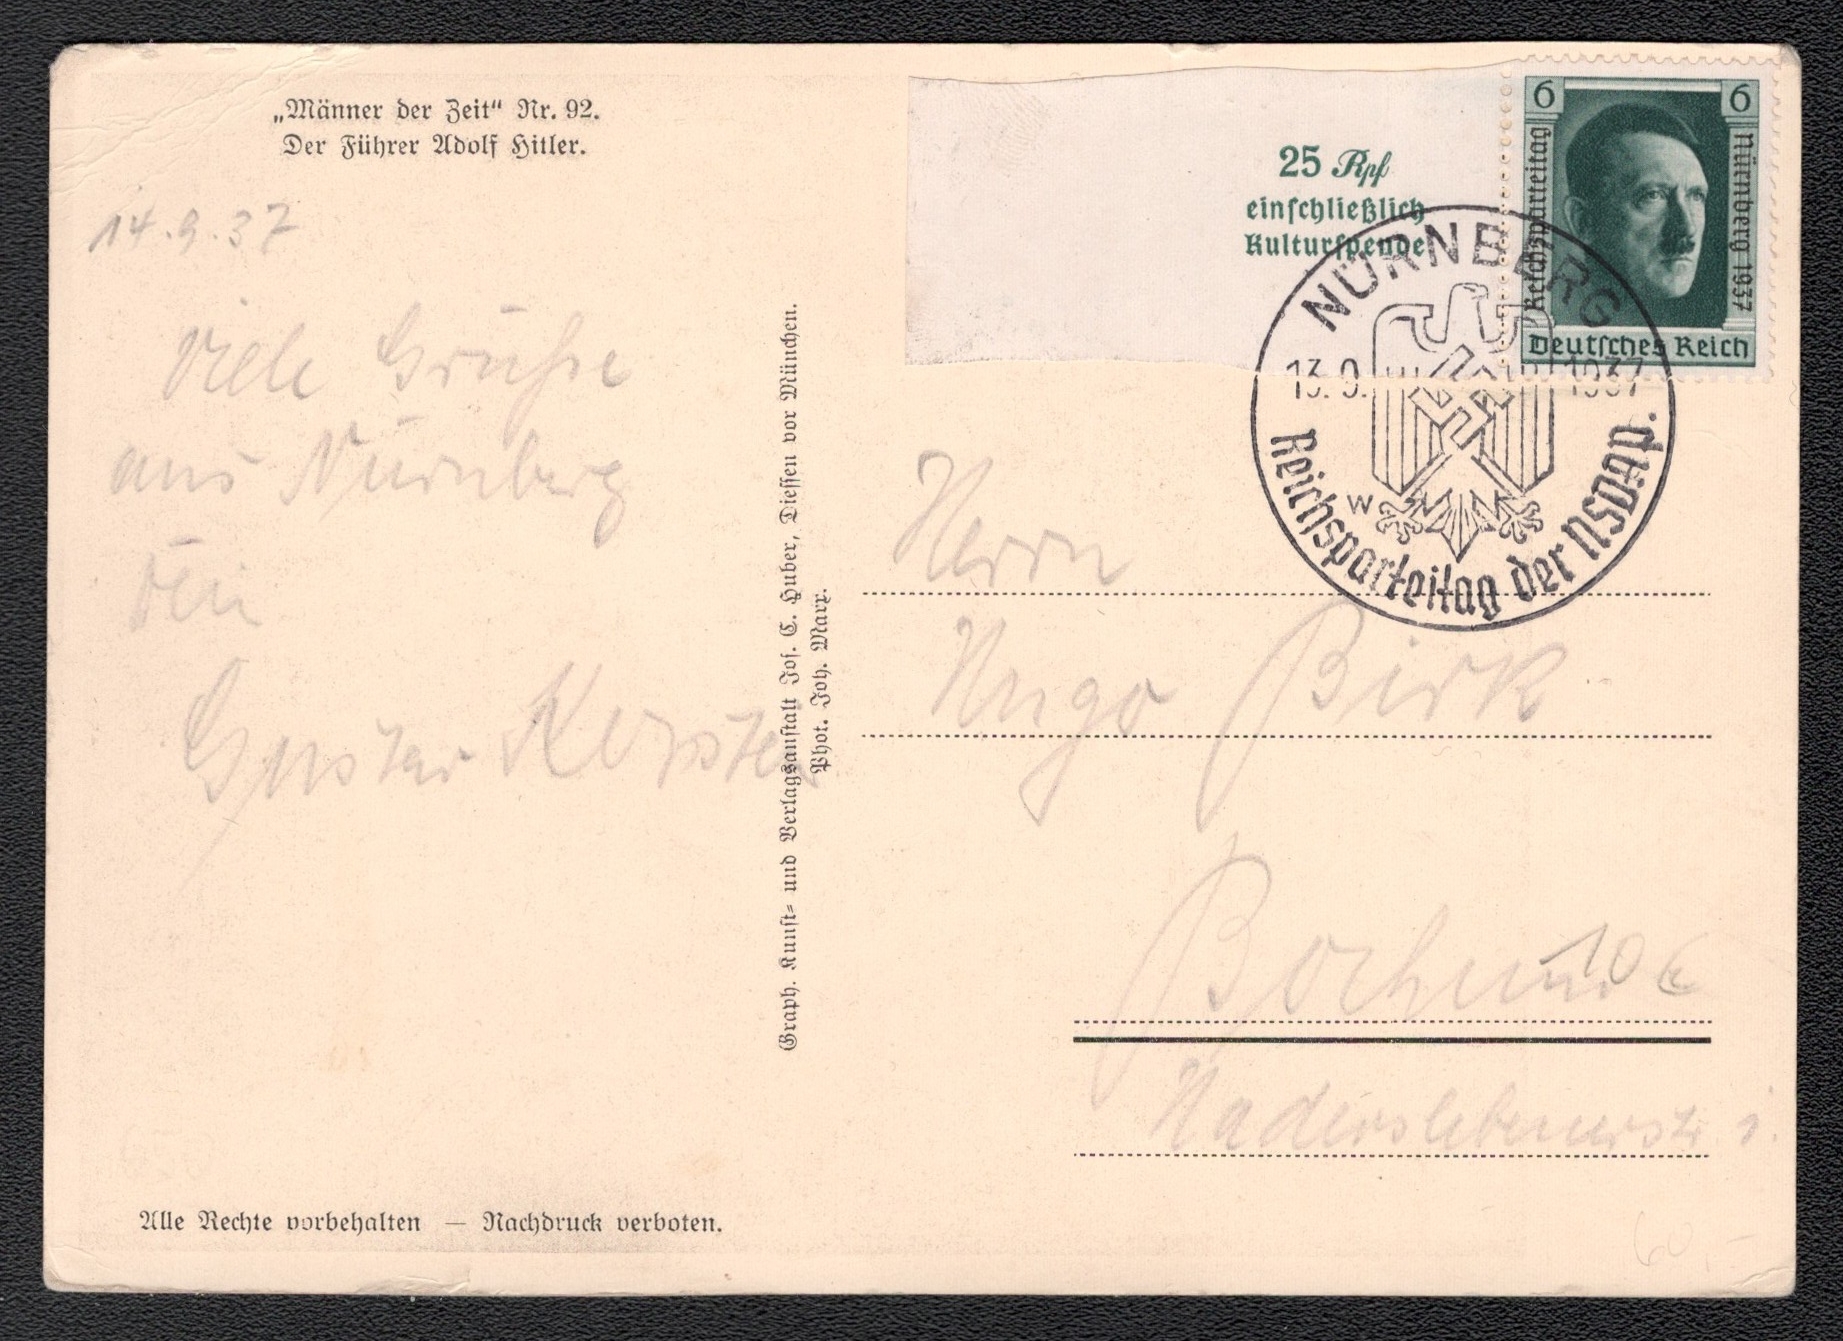 „Männer der Zeit“ Nr. 92.
Der Führer Adolf Hitler.
14.9.37
Viele Grüße
aus Nürnberg
Dein
Gustav Kersten
Graph. Kunst- und Verlagsanstalt Jos. C. Huber, Diessen vor München.
Phot. Joh. Marx.
Alle Rechte vorbehalten — Nachdruck verboten.
25 Rpf
einschließlich
Kulturspende
6 6
Reichsparteitag
Nürnberg 1937
Deutsches Reich
NÜRNBERG
13.9. 1937
W
Reichsparteitag der NSDAP.
Herrn
Hugo Birk
Bochum
10 €
Haderslebenerstr 1.
60,-